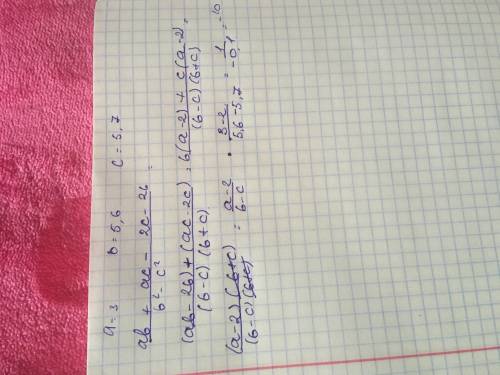 a=3 b=5,6 c=5,7
(ab + ac - 2c - 2b) / (b² - c²) =
((ab - 2b) + (ac - 2c)) / ((b-c)(b+c)) = (b(a-2) + c(a-2)) / ((b-c)(b+c)) =
((a-2)(b+c)) / ((b-c)(b+c)) = (a-2) / (b-c) • (3-2) / (5,6-5,7) = 1 / (-0,1) = -10